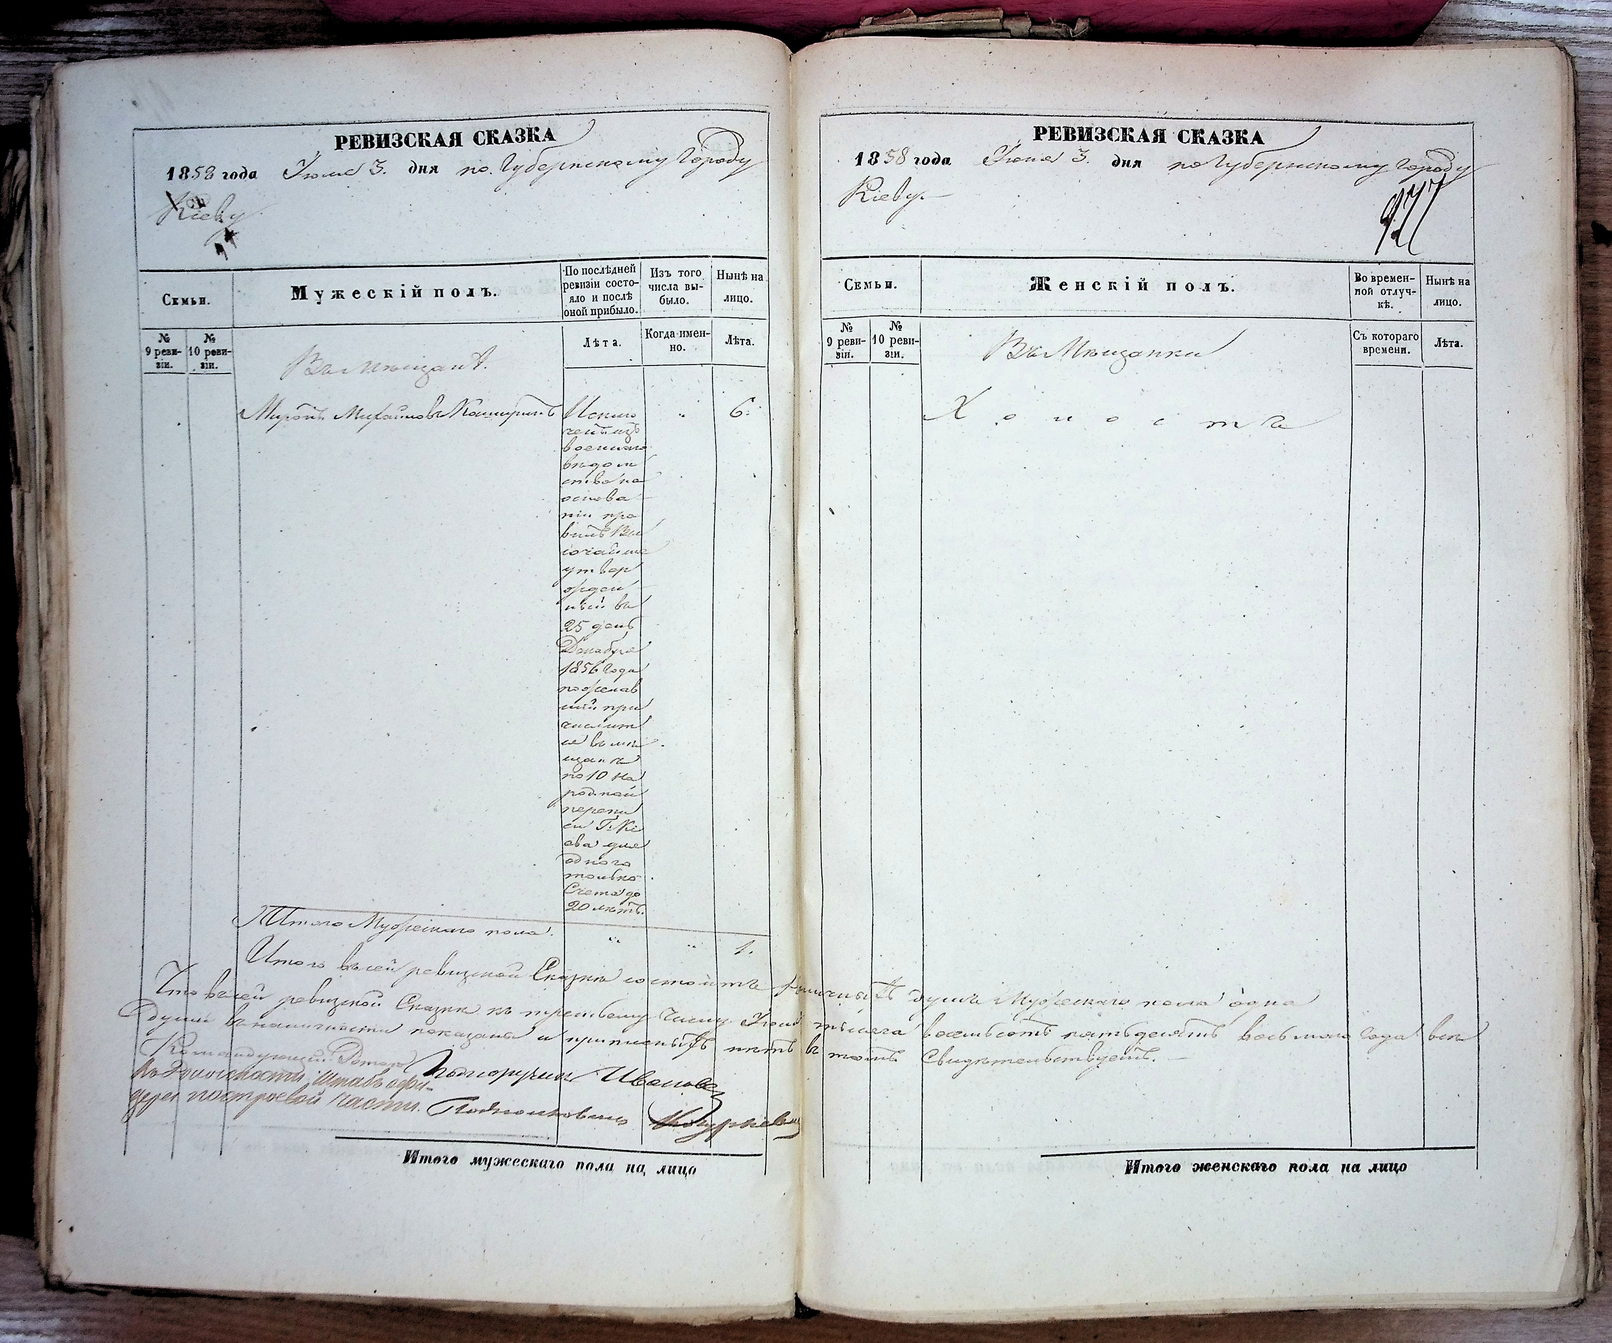 РЕВИЗСКАЯ СКАЗКА
1858 года Іюня 3. дня по Губернскому Городу
Кіеву
Семьи.
Мужескій полъ.
По послѣдней ревизіи состояло и послѣ оной прибыло.
Изъ того числа выбыло.
Нынѣ на лицо.
№ 9 ревизіи.
№ 10 ревизіи.
Лѣта.
Когда именно.
Лѣта.
Въ Мѣщанѣ.
Михайловъ
6.
Исклю
ченъ изъ
военнаго
вѣдом
ства на
основа
ніи пра
вилъ Вы
сочайше
утвер
жден
ныхъ въ
25 день
Декабря
1856 года
пожелав
шій при
числит
ся въ мѣ
щане
по 10 На
родной
перепи
си Г. Кі
ева для
одного
только
Счета до
20 лѣтъ.
Итого Мужескаго пола.
„
„
1.
Итого въ сей ревизской Сказкѣ состоитъ душъ Мужескаго пола одна
Что въ сей ревизской Сказкѣ къ третьему числу Іюня тысяча восемьсотъ пятьдесятъ восьмого года всѣ
души въ наличности показаны и нѣтъ въ томъ свидѣтельствуетъ.
Командующій Ротою
Подпоручикъ Ивановъ
въ Должности Штабъ офи-
цера построевой части.
Подполковникъ
Итого мужескаго пола на лицо
РЕВИЗСКАЯ СКАЗКА
1858 года Іюня 3. дня по Губернскому Городу
Кіеву.
Семьи.
Женскій полъ.
Во временной отлучкѣ.
Нынѣ на лицо.
№ 9 ревизіи.
№ 10 ревизіи.
Съ котораго времени.
Лѣта.
Въ Мѣщанки
Холостъ
Итого женскаго пола на лицо